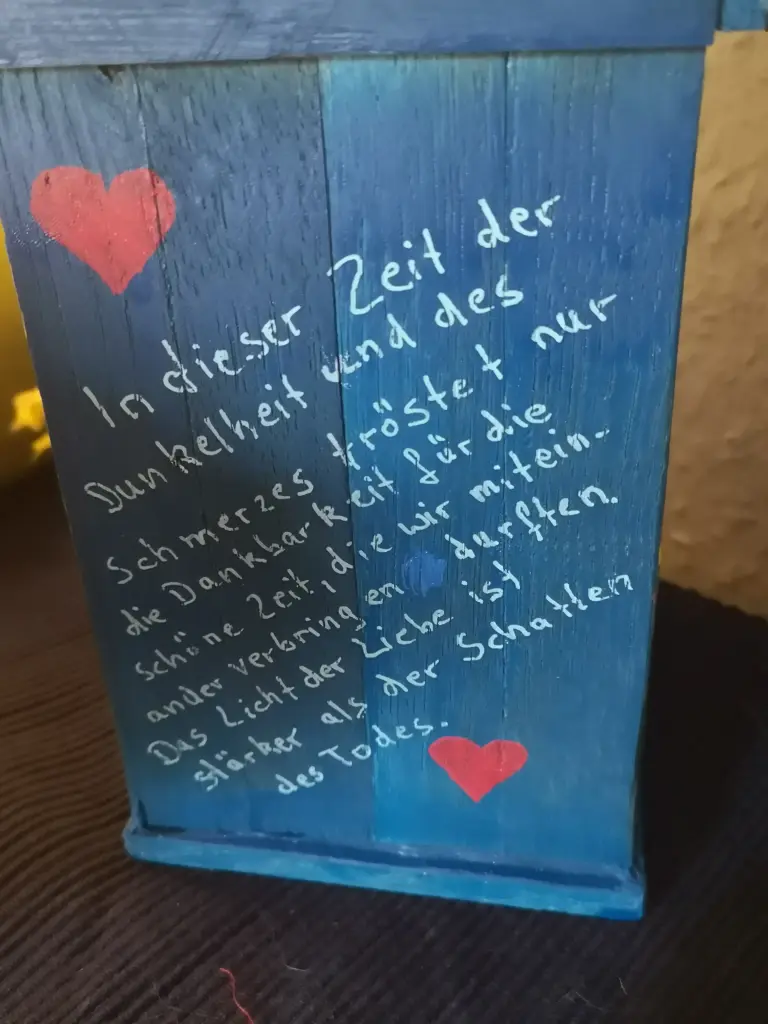 In dieser Zeit der
Dunkelheit und des
Schmerzes tröstet nur
die Dankbarkeit für die
schöne Zeit, die wir mitein-
ander verbringen durften.
Das Licht der Liebe ist
stärker als der Schatten
des Todes.